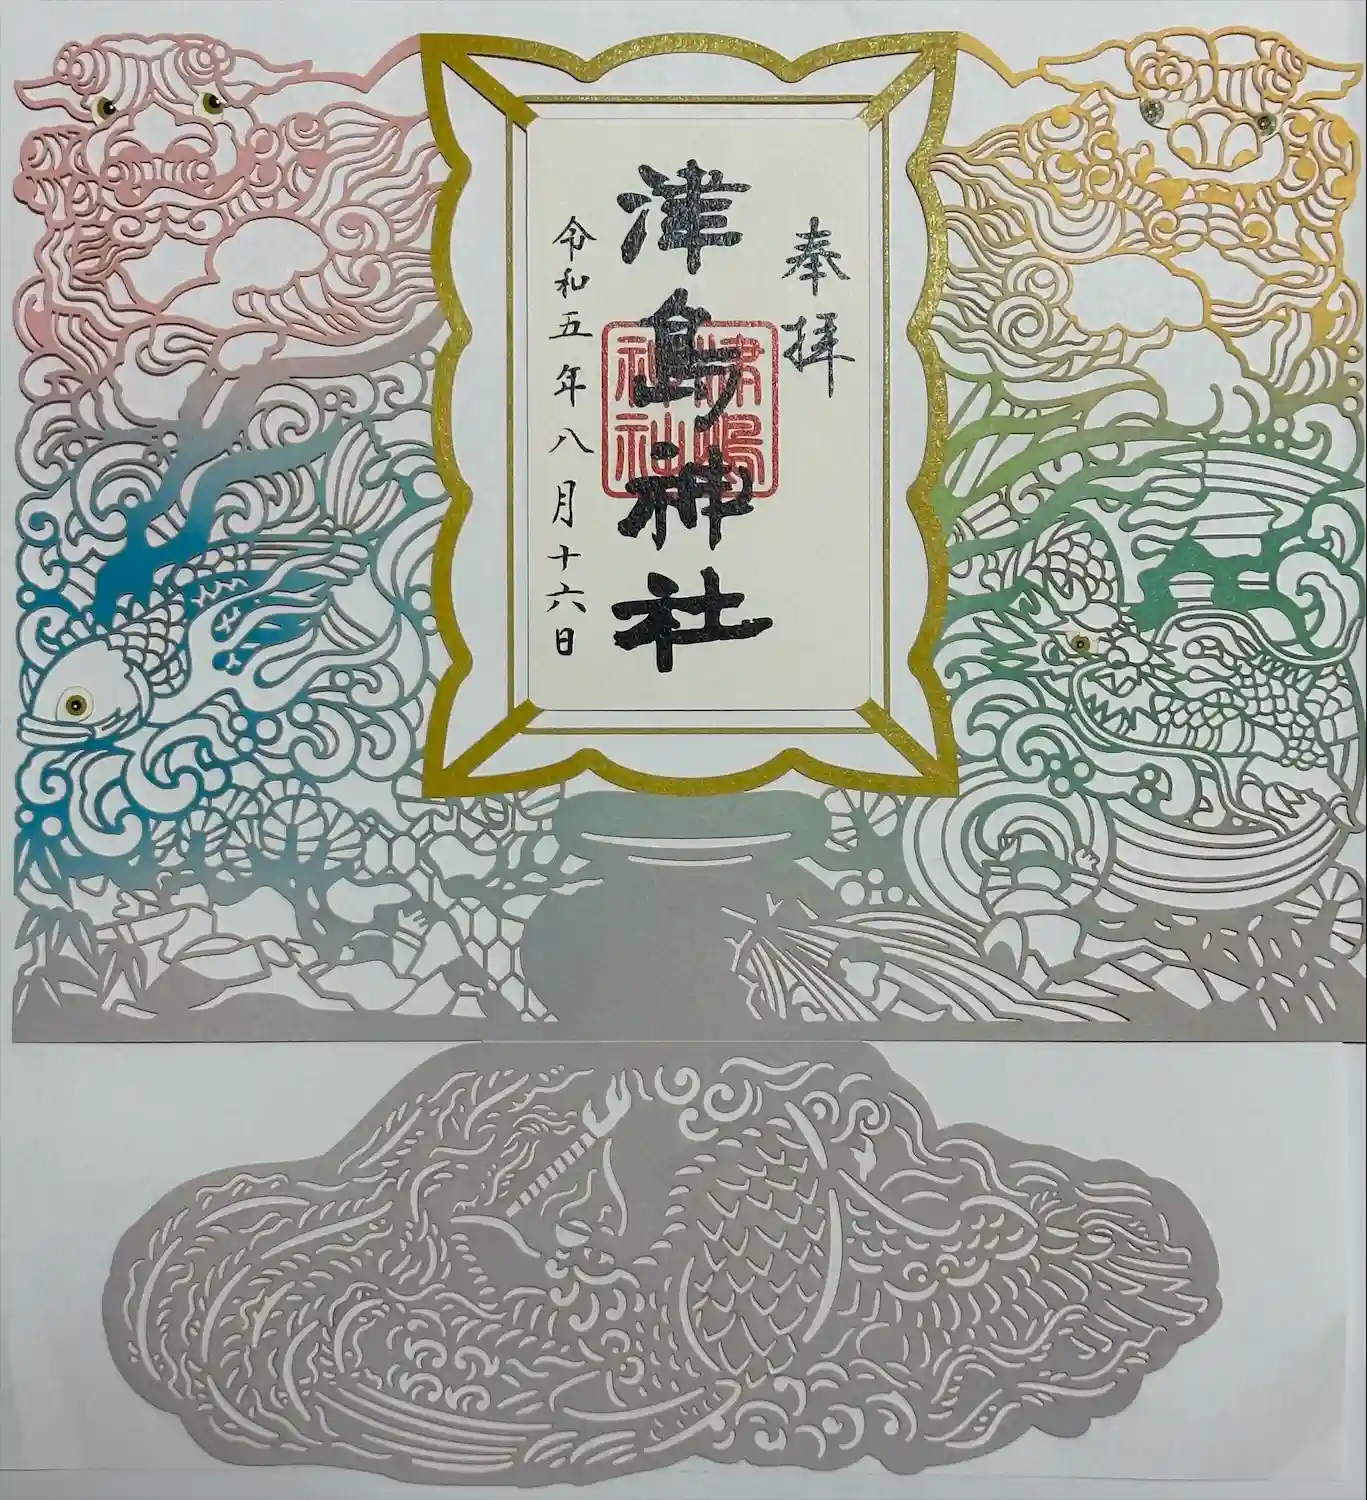 奉拝
津島神社
津島神社
令和五年八月十六日